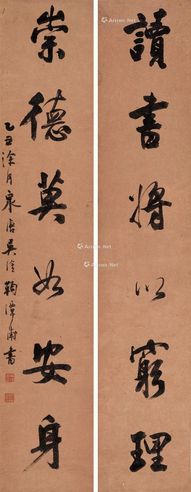 讀書將以窮理
崇德莫如安身
乙丑涂月泉唐吳淦鞠潭甫書
Artron.Net